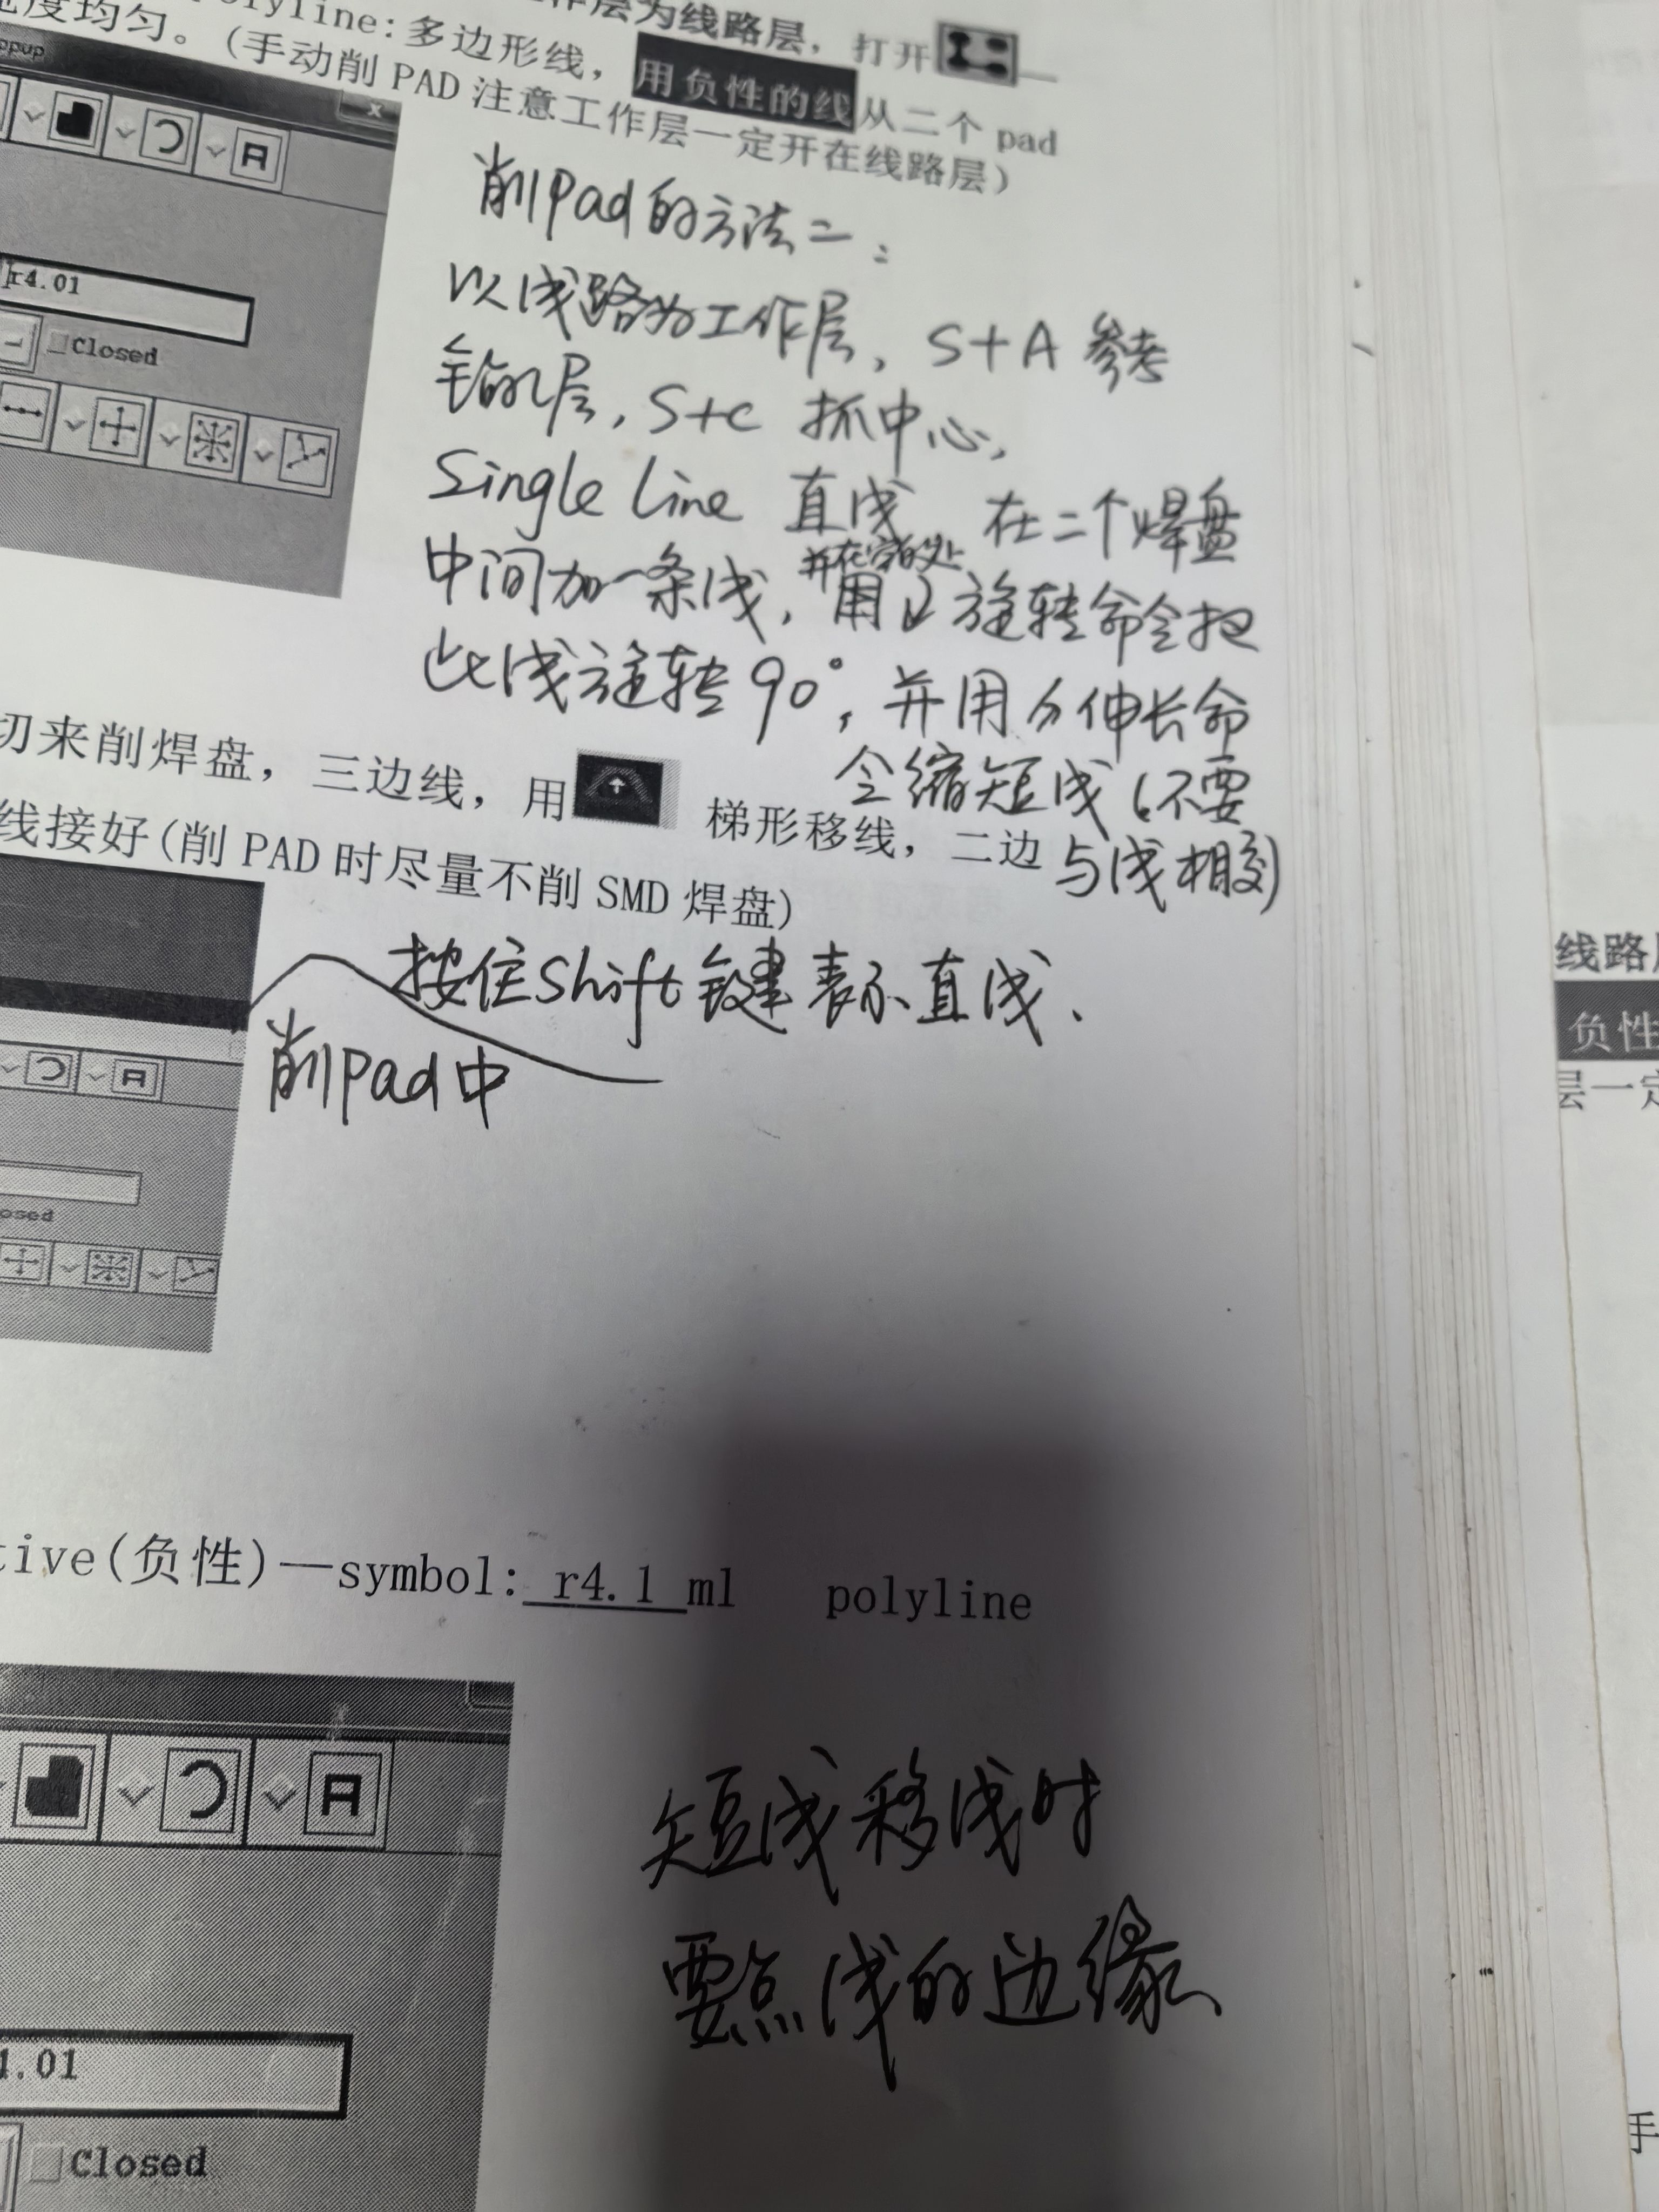 作层为线路层，打开
olyline:多边形线，用负性的线从二个 pad
度均匀。(手动削 PAD 注意工作层一定开在线路层)
opup
x
A
r4.01
Closed
削Pad的方法二：
以线路为工作层，S+A 参考
钻孔层，S+C 抓中心，
Single Line 直线 在二个焊盘
中间加一条线，用 旋转命令把
此线旋转90°，并用 伸长命
令缩短线(不要
与线相交)
切来削焊盘，三边线，用 梯形移线，二边
线接好(削 PAD 时尽量不削 SMD 焊盘)
按住Shift键表示直线、
削Pad中
A
osed
tive(负性)—symbol: r4.1 ml polyline
A
4.01
Closed
短线移线时
要点线的边缘、
线路
负性
层一定
手